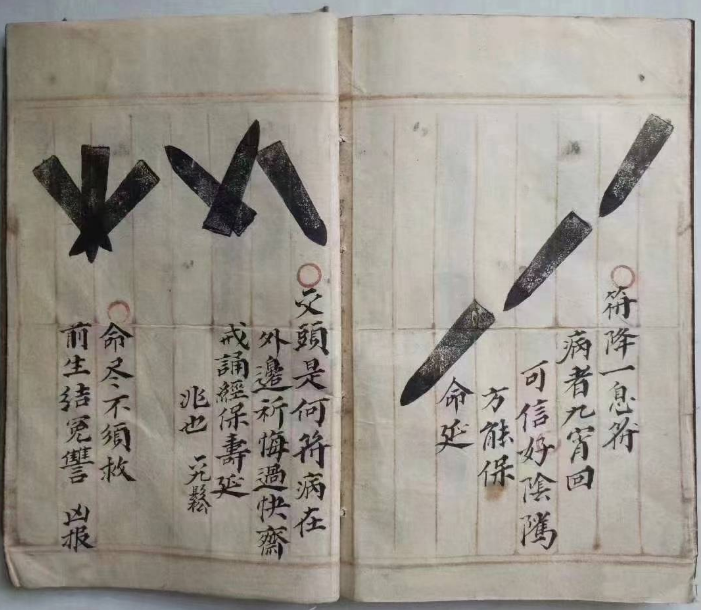 符降一息符
病者九宵回
可信好陰隲
方能保
命延
交頭是何符病在
外邊祈悔過快齋
戒誦經保壽延
兆也
命尽不須救
前生結冤讐 凶报